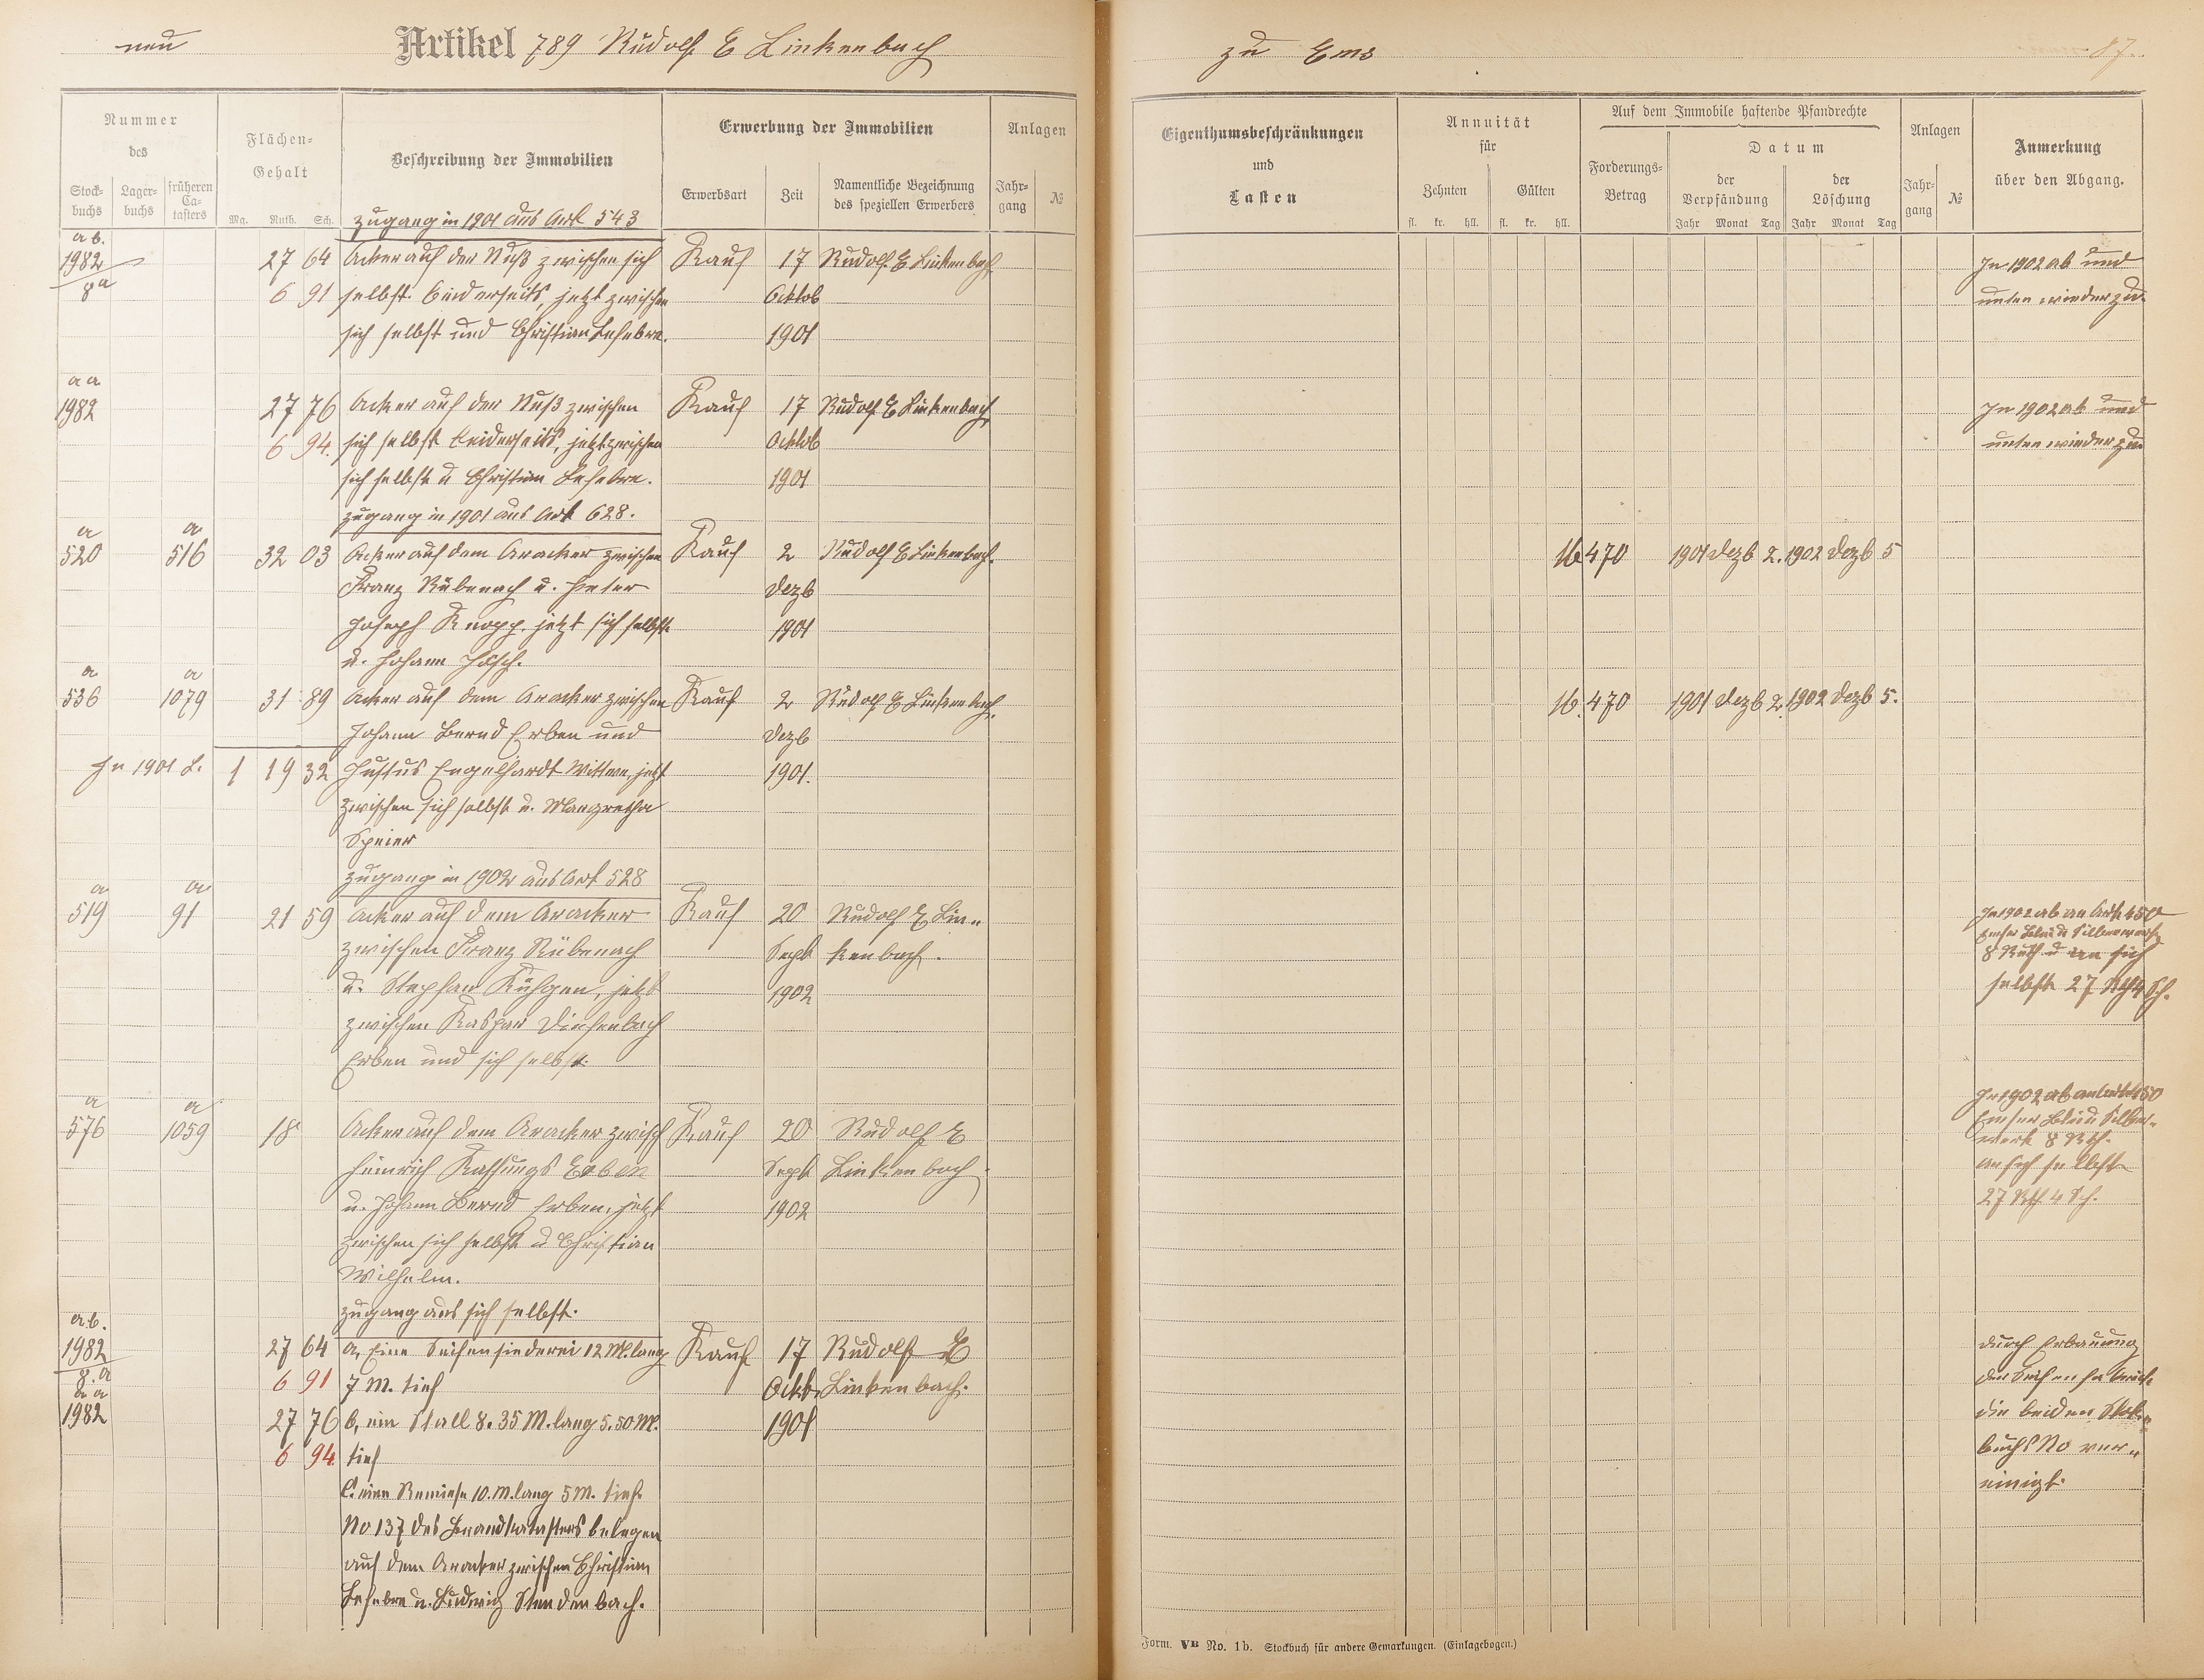 neu Artikel 789 Rudolf E Linkenbach
zu Ems 87.
Nummer
des
Stock-
buchs
Lager-
buchs
früheren
Ca-
tasters
Flächen-
Gehalt
Mg. Ruth. Sch.
Beschreibung der Immobilien
Erwerbung der Immobilien
Erwerbsart
Zeit
Namentliche Bezeichnung
des speziellen Erwerbers
Anlagen
Jahr-
gang
№
Zugang in 1901 aus Art 543
ab.
1982 27 64 Acker auf der Nuß zwischen sich Kauf 17 Rudolf E Linkenbach
8a 6 91 selbst beiderseits, jetzt zwischen Oktob
sich selbst und Christian Lefebre. 1901
aa
1982 27 76 Acker auf der Nuß zwischen Kauf 17 Rudolf E Linkenbach
6 94. sich selbst beiderseits, jetzt zwischen Oktob
sich selbst u Christian Lefebre. 1901
Zugang in 1901 aus Art 628.
a a
520 516 32 03 Acker auf dem Aracker zwischen Kauf 2 Rudolf E Linkenbach.
Franz Rübenach u. Peter Dezb
Joseph Knopp. jetzt sich selbst 1901
u. Johann Hösch.
a a
536 1079 31 89 Acker auf dem Aracker zwischen Kauf 2 Rudolf E Linkenbach.
Johann Bernd Erben und Dezb
In 1901 L. 1 19 32 Justus Engelhardt Wittwe, jetzt 1901.
zwischen sich selbst u. Margretha
Speier
Zugang in 1902 aus Art 528
a a
519 91 21 59 Acker auf dem Aracker Kauf 20 Rudolf E Lin„
zwischen Franz Rübenach Sept kenbach.
u. Stephan Kuhgen, jetzt 1902
zwischen Kaspar Diefenbach
Erben und sich selbst.
a a
576 1059 18 Acker auf dem Aracker zwisch Kauf 20 Rudolf E
Heinrich Kassungs Erben Sept Linkenbach.
u. Johann Bernd Erben, jetzt 1902
zwischen sich selbst u Christian
Wilhelm.
Zugang aus sich selbst.
a.b.
1982 27 64 a, Eine Seifensiederei 12 M. lang Kauf 17 Rudolf E
8.a 6 91 7 M. tief Oktb. Linkenbach.
aa
1982 27 76 b, ein Stall 8.35 M. lang 5.50 M. 1901
6 94 tief
C. eine Remiese 10. M. lang 5 M. tief.
No 137 des Brandkatasters belegen
auf dem Aracker zwischen Christian
Lefebre u. Ludwig Stendenbach.
Eigenthumsbeschränkungen
und
Lasten
Annuität
für
Zehnten
Gülten
fl. kr. hll. fl. kr. hll.
Auf dem Immobile haftende Pfandrechte
Forderungs-
Betrag
Datum
der
Verpfändung
der
Löschung
Jahr Monat Tag Jahr Monat Tag
Anlagen
Jahr-
gang
№
Anmerkung
über den Abgang.
In 1902 ab und
unten wieder zu.
In 1902 ab und
unten wieder zu
M 470 1901 Dezb 2. 1902 Dezb 5
M. 470 1901 Dezb 2. 1902 Dezb 5.
In 1902 ab an Art 450
Emser Blei u Silberwerk
8 Ruth u an sich
selbst 27 Rth 4 Sch.
In 1902 ab an Art 450
Emser Blei u Silber„
werk 8 Rth.
an sich selbst
27 Rth. 4 Sch.
Durch Erbauung
die beiden Stok„
buchs No ver„
einigt.
Form. VB No. 1b. Stockbuch für andere Gemarkungen. (Einlagebogen.)